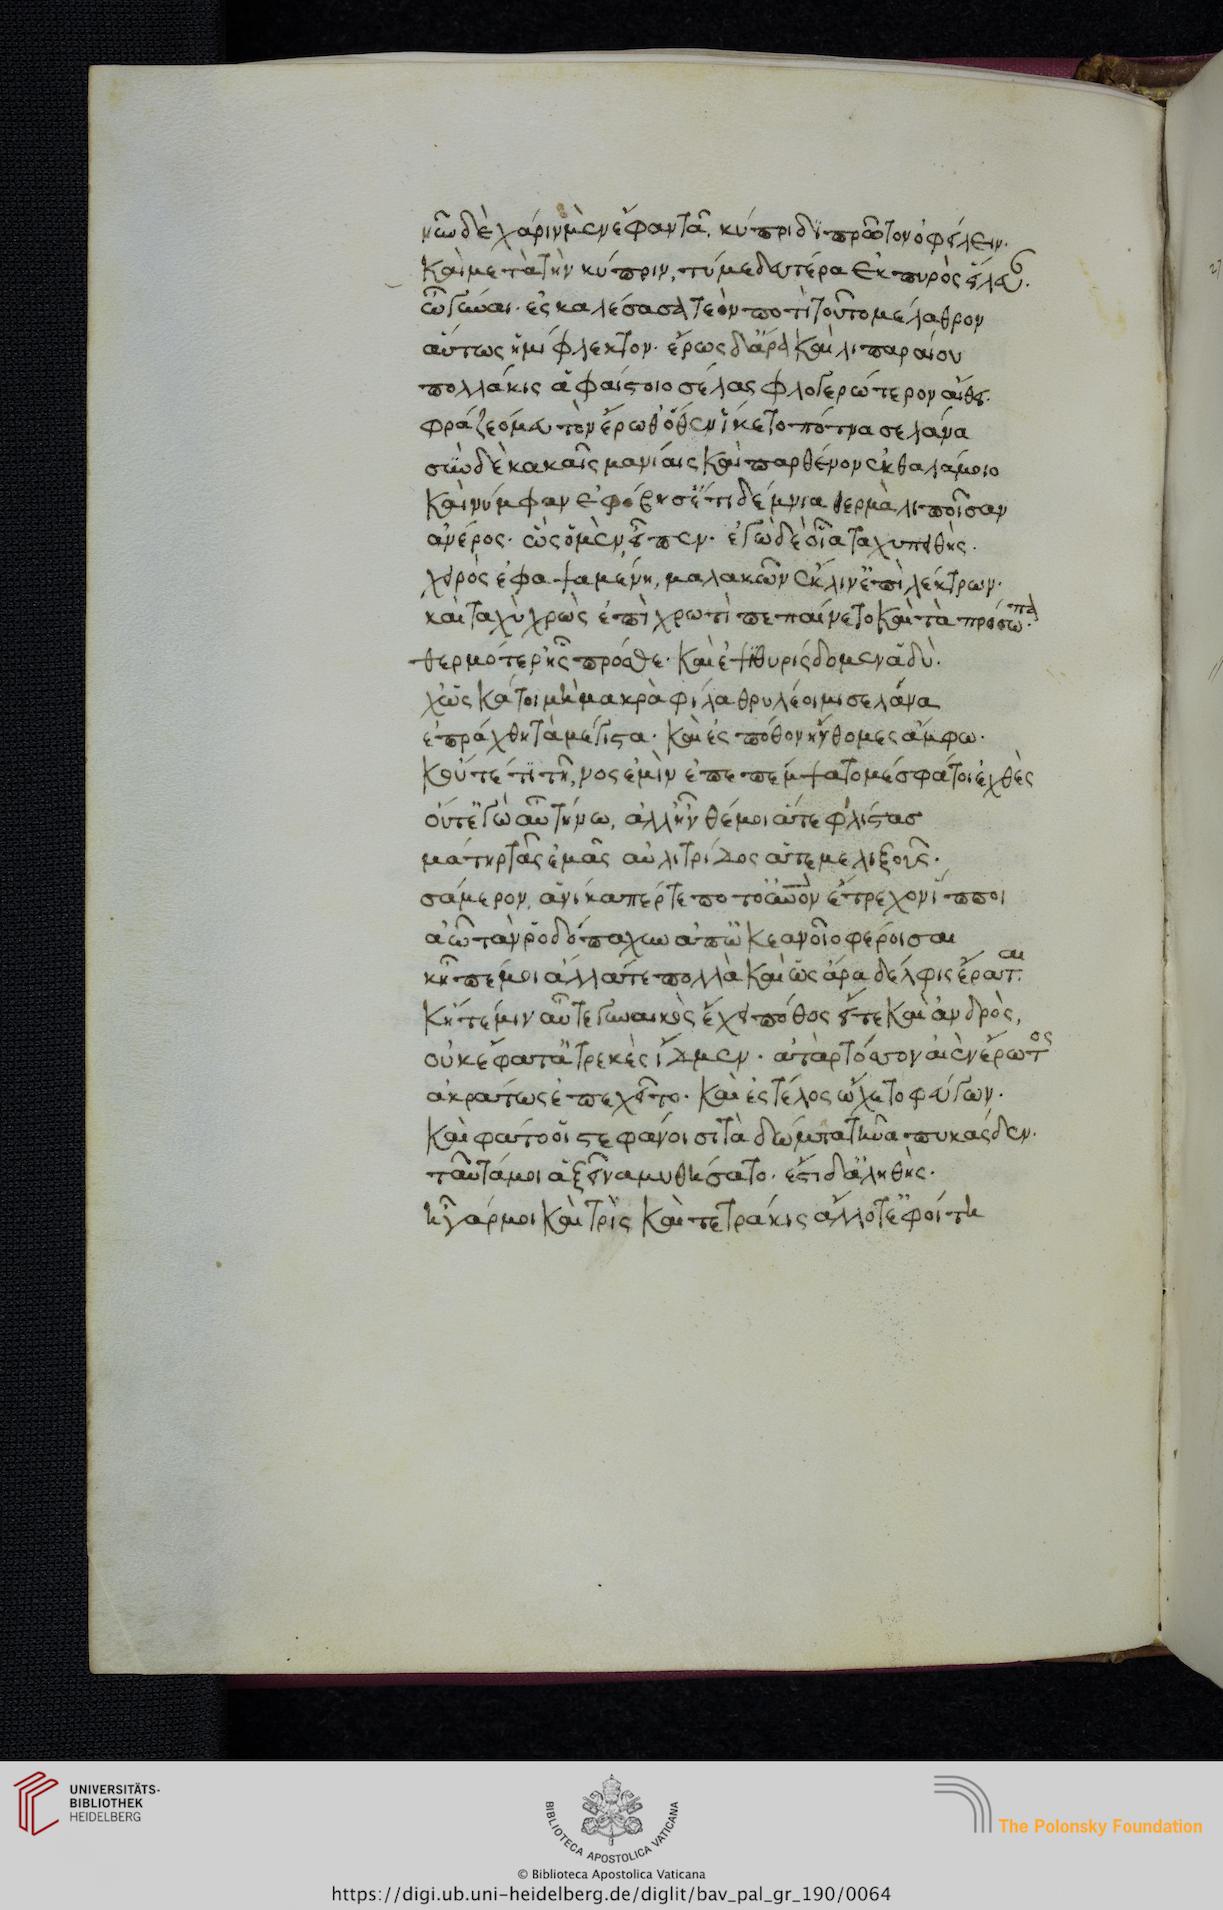 νῦν δὲ χάριν μὲν ἔφαν τᾷ κύπριδι πρᾶτον ὀφείλειν.
Καὶ μετὰ τὴν κύπριν, τύ με δευτέρα ἐκ πυρὸς εἵλευ.
ὦ γύναι. ἐσκαλέσασα τεὸν ποτὶ τοῦτο μέλαθρον
αὔτως ἡμίφλεκτον. ἔρως δ' ἄρα Καὶ λιπαραίου
πολλάκις ἀφαίστοιο σέλας φλογερώτερον αἴθει.
φράζεό μευ τὸν ἔρωθ' ὅθεν ἵκετο πότνα σελάνα
σὺν δὲ κακαῖς μανίαις Καὶ παρθένον ἐκ θαλάμοιο
Καὶ νύμφαν ἐφόβησ' ἔτι δέμνια θερμὰ λιποῖσαν
ἀνέρος. ὣς ὁ μὲν εἶπεν. ἐγὼ δὲ οἷ ἁ ταχυπειθὴς.
χειρὸς ἐφαψαμένη, μαλακῶν ἔκλιν' ἐπὶ λέκτρων.
καὶ ταχὺ χρὼς ἐπὶ χρωτὶ πεπαίνετο Καὶ τὰ πρόσωπα
θερμότερ' ἦς πρόσθε. Καὶ ἐψιθυρίσδομεν ἁδύ.
χὥς Κά τοι μὴ μακρὰ φίλα θρυλέοιμι σελάνα
ἐπράχθη τὰ μέγιστα. Καὶ ἐς πόθον ἤνθομες ἄμφω.
Κοὔτέ τι τῆνος ἐμὶν ἐπεπέμψατο μέσφα τοι ἐχθὲς
οὔτ' ἐγὼ αὖ τήνω, ἀλλ' ἦνθέ μοι ἅ τε φιλίστας
μάτηρ τᾶς ἐμᾶς αὐλιτρίδος ἅ τε μελιξοῦς.
σάμερον, ἁνίκα πέρ τε ποτ' οὐρανὸν ἔτρεχον ἵπποι
ἀῶ τὰν ῥοδόπαχυν ἀπ' ὠκεανοῖο φέροισαι
κἦπέ μοι ἄλλα τε πολλὰ Καὶ ὡς ἄρα δέλφις ἔραται.
Κἤτέ μιν αὖτε γυναικὸς ἔχει πόθος εἴτε Καὶ ἀνδρὸς,
οὐκ ἔφατ' ἀτρεκὲς ἴδμεν. ἀτὰρ τόσον αἰὲν ἔρωτος
ἀκράτως ἐπεχεῖτο. Καὶ ἐς τέλος ᾤχετο φεύγων.
Καὶ φάτο οἱ στεφάνοισι τὰ δώματα τῆνα πυκάσδεν.
ταῦτά μοι ἁ ξείνα μυθήσατο. ἔστι δ' ἀληθὴς.
ἦ γάρ μοι Καὶ τρὶς Καὶ τετράκις ἄλλοτ' ἐφοίτη
UNIVERSITÄTS-
BIBLIOTHEK
HEIDELBERG
BIBLIOTECA APOSTOLICA VATICANA
© Biblioteca Apostolica Vaticana
The Polonsky Foundation
https://digi.ub.uni-heidelberg.de/diglit/bav_pal_gr_190/0064